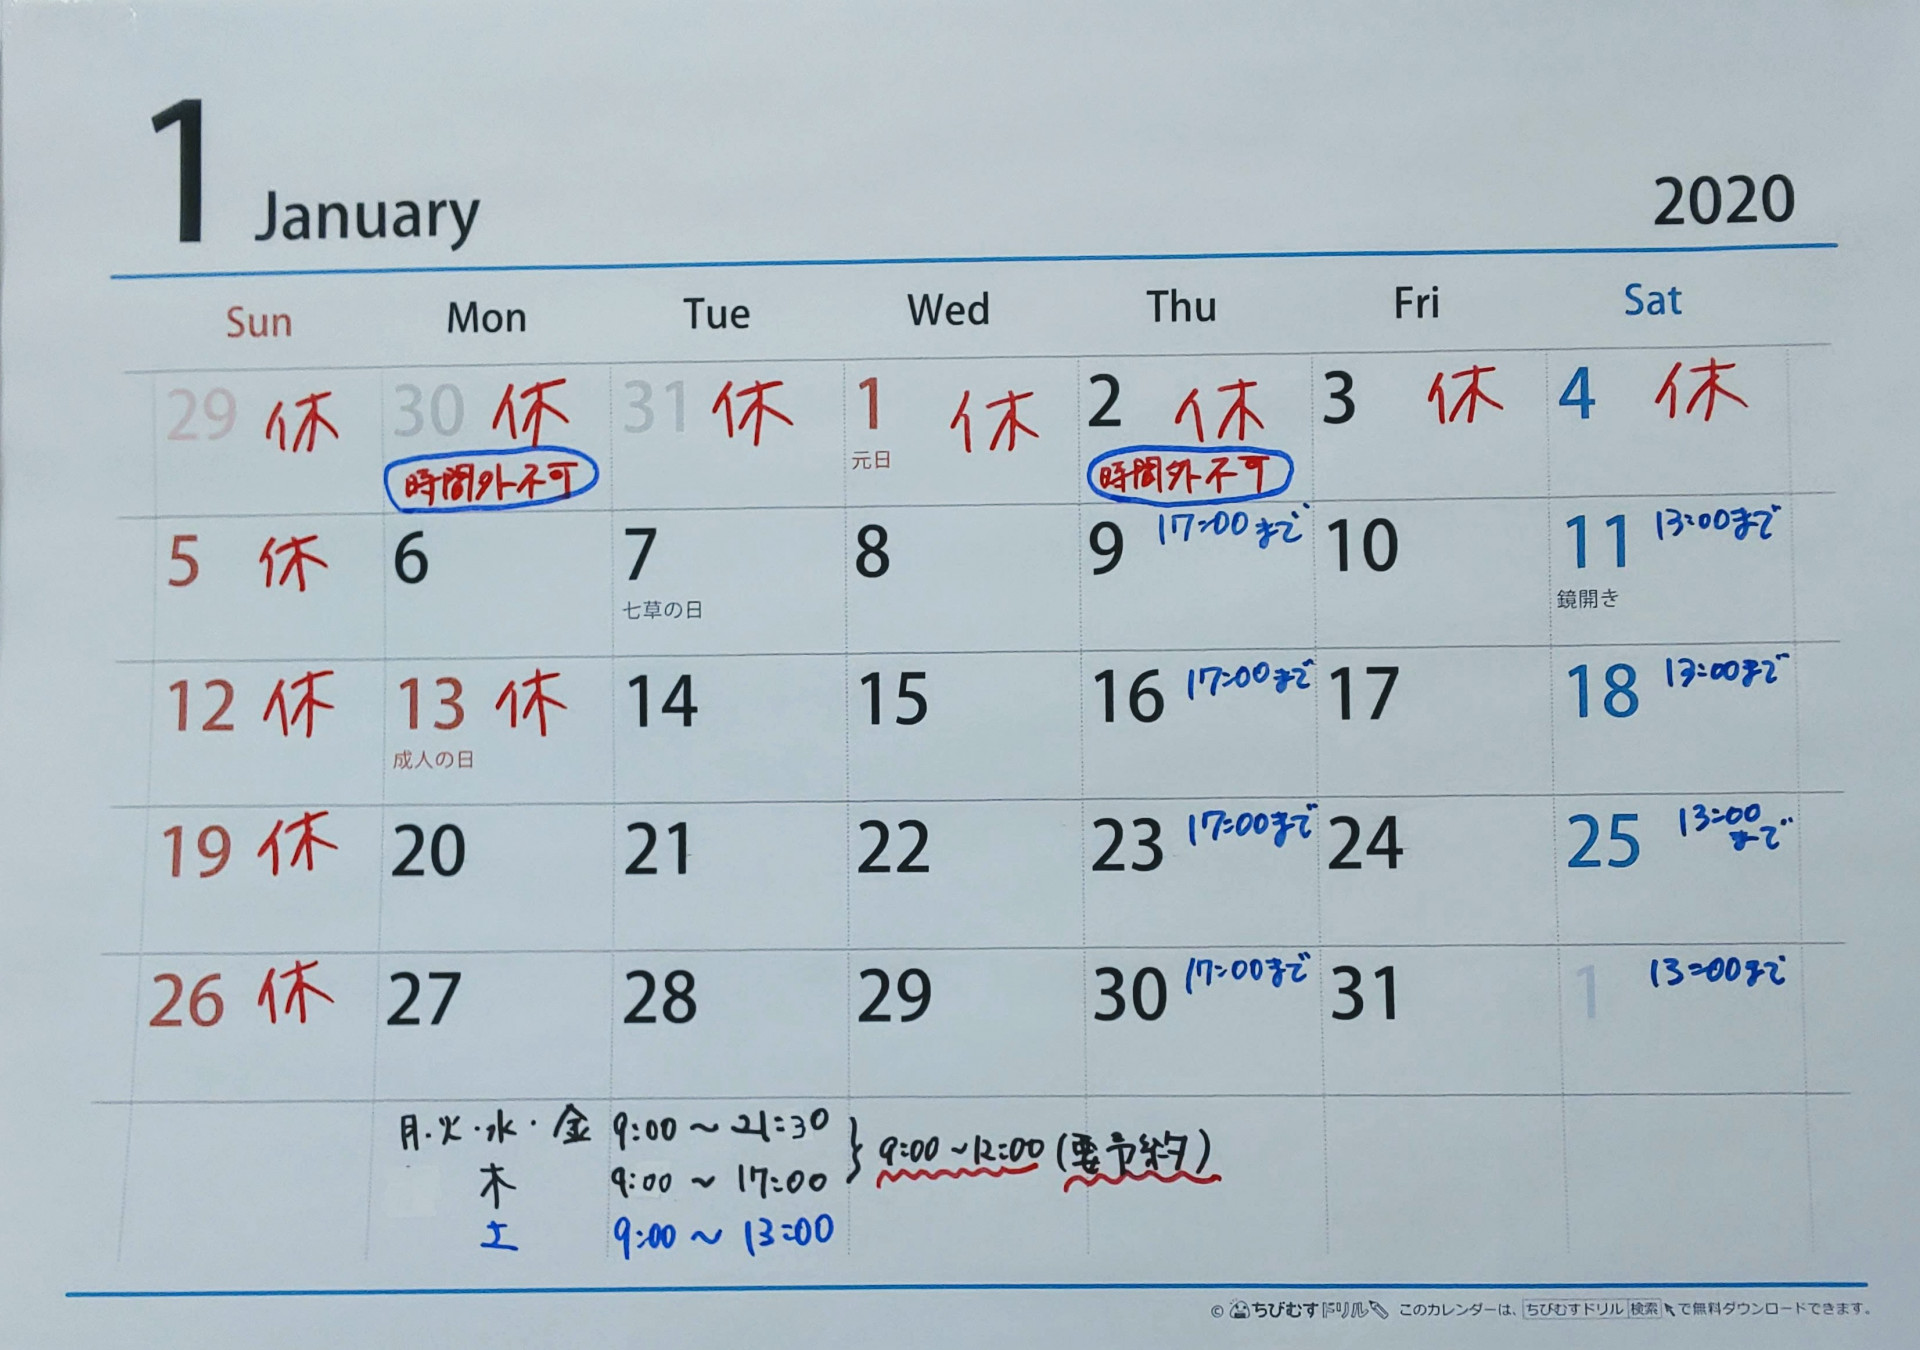 1 January 2020
Sun Mon Tue Wed Thu Fri Sat
29 休 30 休 31 休 1 休 2 休 3 休 4 休
時間外不可 元日 時間外不可
5 休 6 7 8 9 17:00まで 10 11 13:00まで
七草の日 鏡開き
12 休 13 休 14 15 16 17:00まで 17 18 13:00まで
成人の日
19 休 20 21 22 23 17:00まで 24 25 13:00まで
26 休 27 28 29 30 17:00まで 31 1 13:00まで
月・火・水・金 9:00～21:30
木 9:00～17:00
} 9:00～12:00(要予約)
土 9:00～13:00
© ちびむすドリル このカレンダーは、ちびむすドリル 検索 で無料ダウンロードできます。